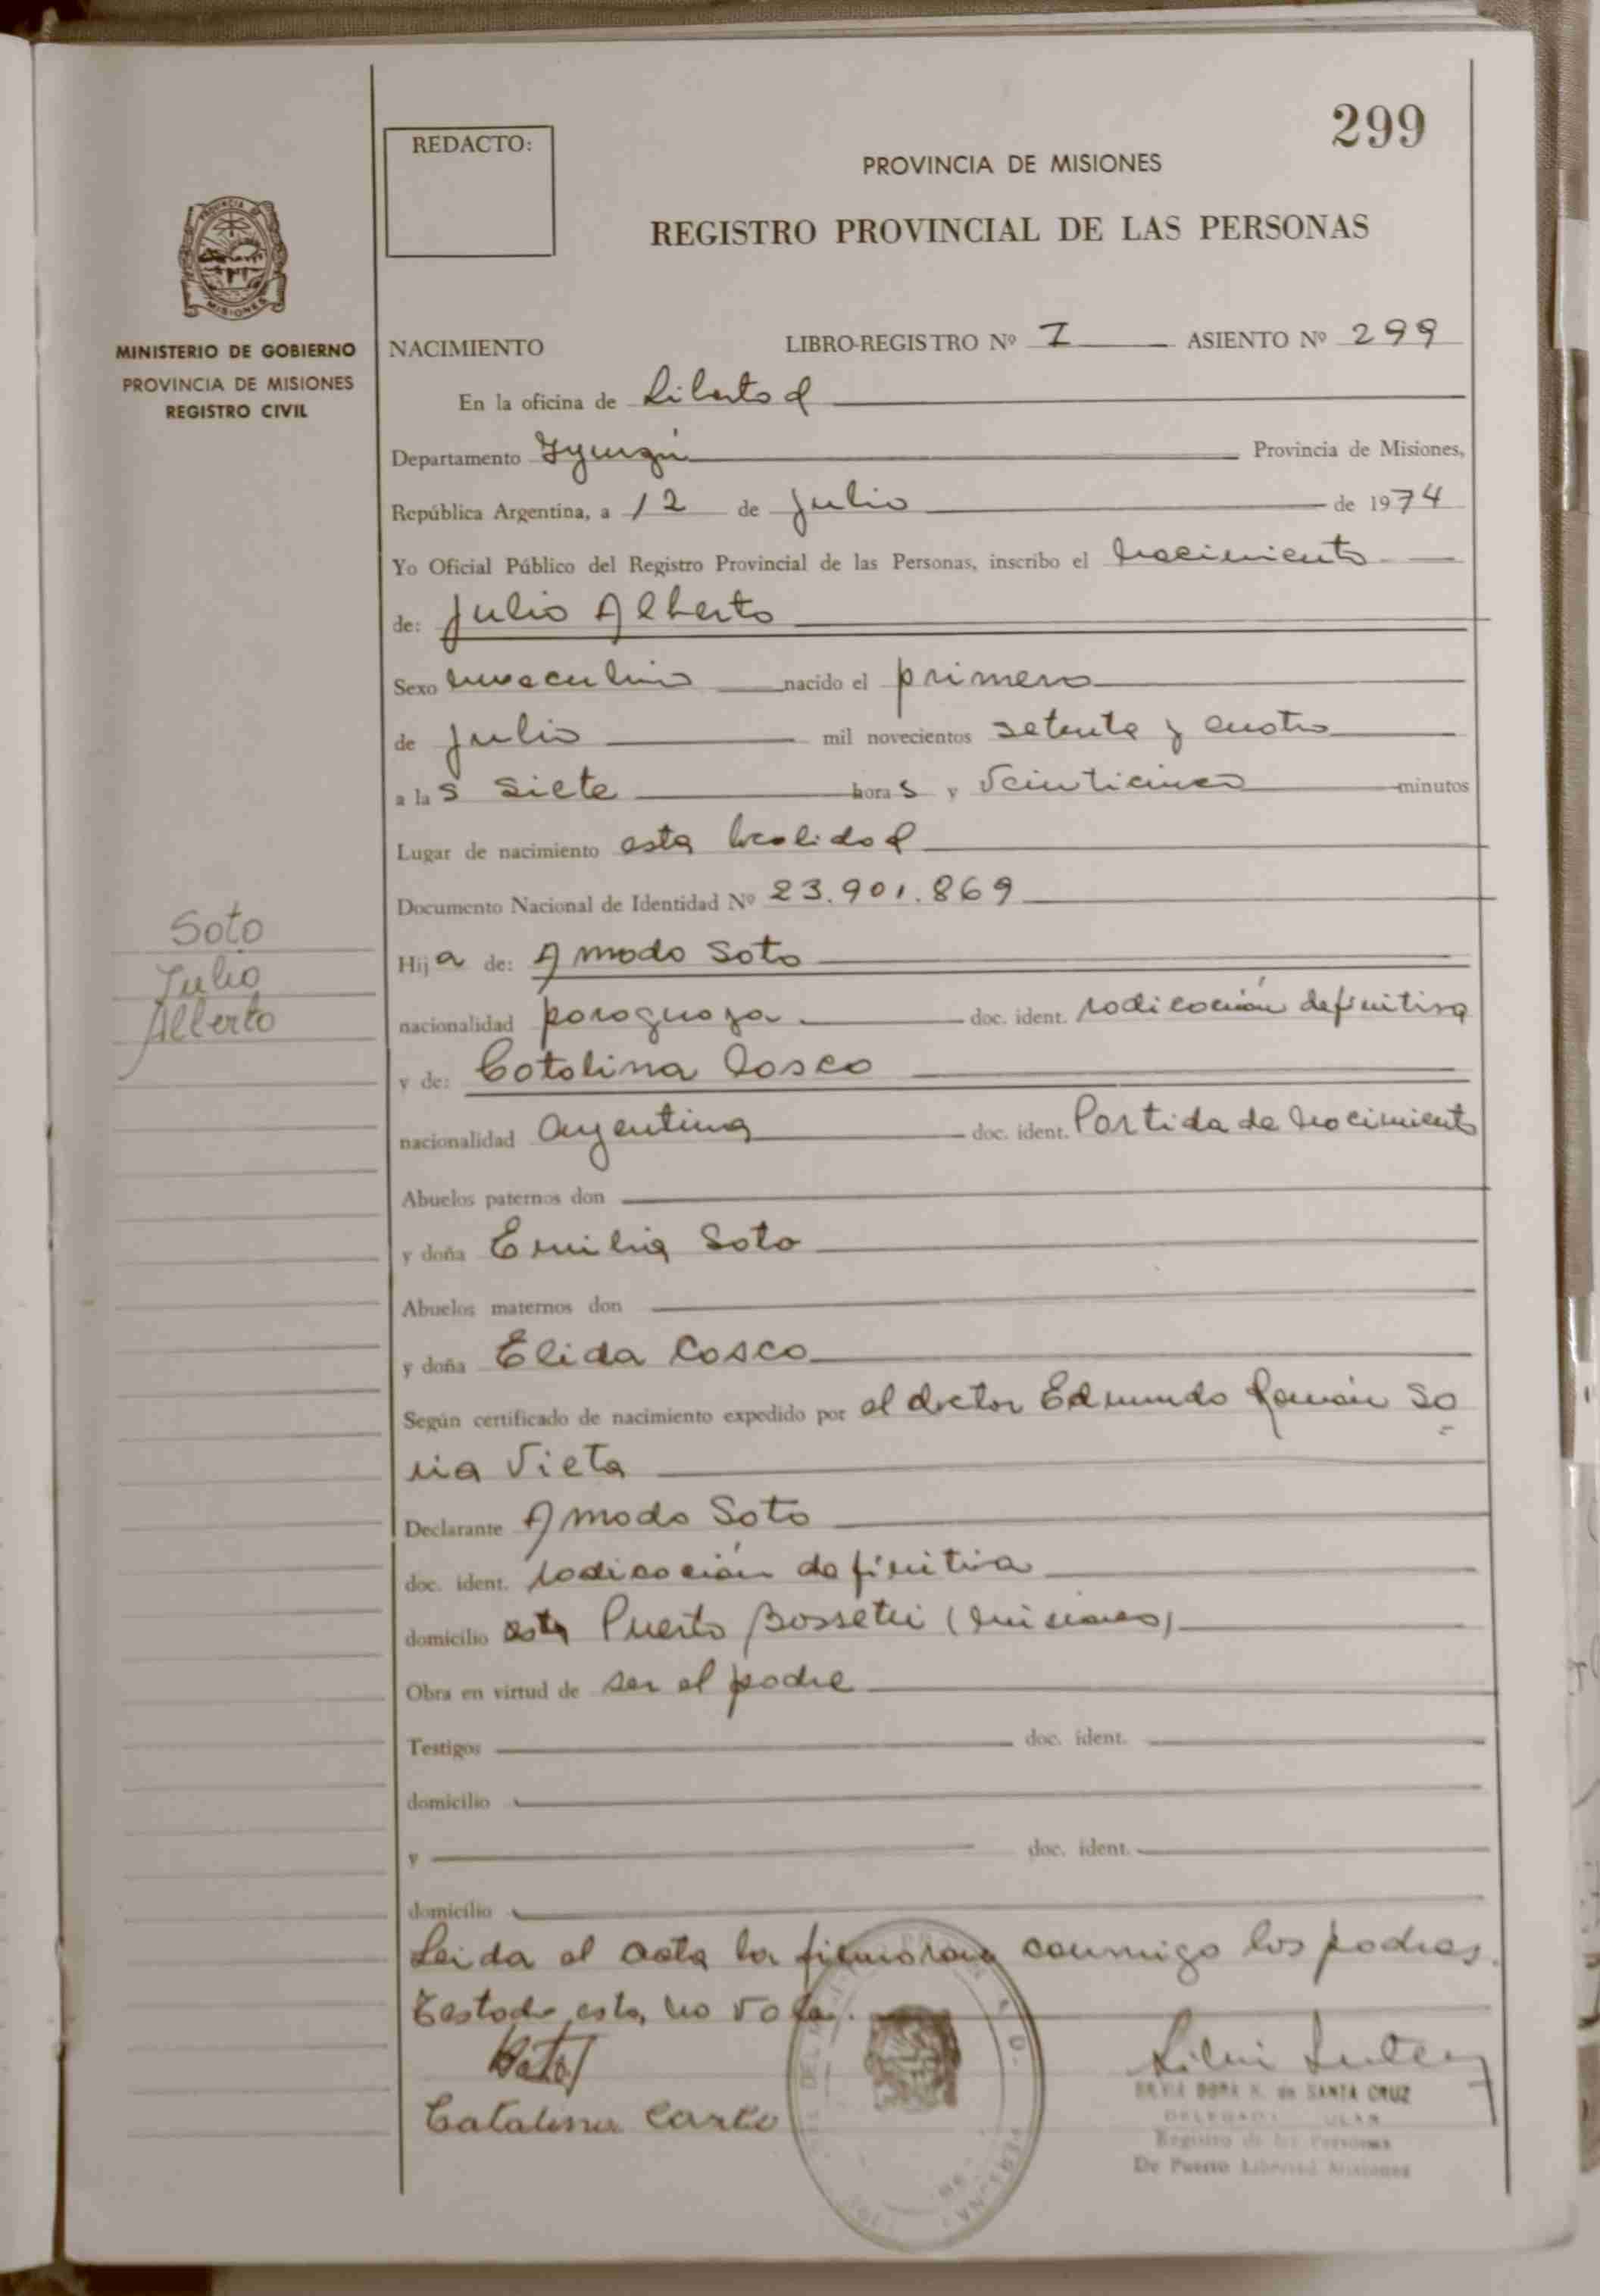 299
REDACTO:
PROVINCIA DE MISIONES
REGISTRO PROVINCIAL DE LAS PERSONAS
PROVINCIA DE
MISIONES
MINISTERIO DE GOBIERNO
PROVINCIA DE MISIONES
REGISTRO CIVIL
NACIMIENTO LIBRO-REGISTRO Nº I ASIENTO Nº 299
En la oficina de Libertad
Departamento Iguazú Provincia de Misiones,
República Argentina, a 12 de Julio de 1974
Yo Oficial Público del Registro Provincial de las Personas, inscribo el nacimiento
de: Julio Alberto
Sexo masculino nacido el primero
de Julio mil novecientos setenta y cuatro
a las siete horas y veinticinco minutos
Lugar de nacimiento esta localidad
Documento Nacional de Identidad Nº 23.901.869
Soto
Julio
Alberto
Hija de: Amado Soto
nacionalidad paraguaya doc. ident. radicación definitiva
y de: Catalina Casco
nacionalidad argentina doc. ident. Partida de nacimiento
Abuelos paternos don
y doña Emilia Soto
Abuelos maternos don
y doña Elida Casco
Según certificado de nacimiento expedido por el doctor Edmundo Román So
ria Vieta
Declarante Amado Soto
doc. ident. radicación definitiva
domicilio esta Puerto Bossetti (Misiones)
Obra en virtud de ser el padre
Testigos doc. ident.
domicilio
y doc. ident.
domicilio
Leida el acta la firmaron conmigo los padres.
Testado esta, no vale.
Catalina Casco
DORA N. de SANTA CRUZ
Registro de las Personas
De Puerto Libertad Misiones